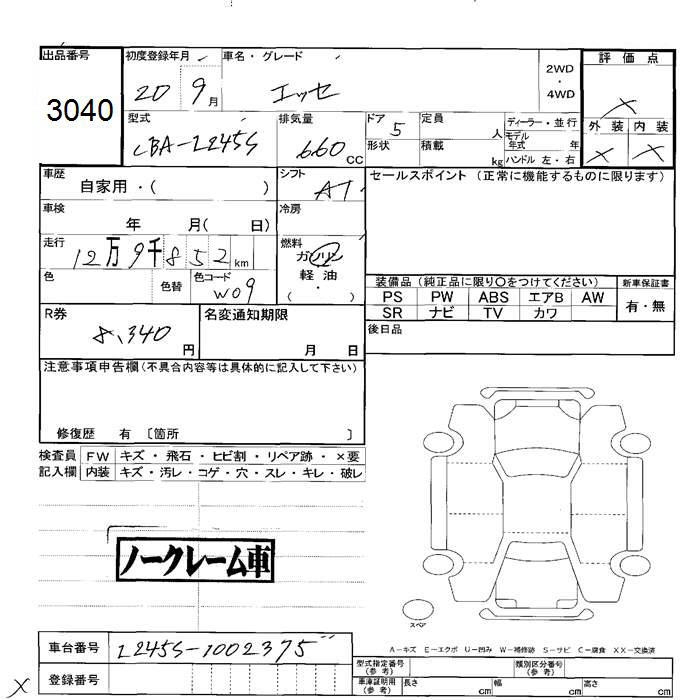 出品番号
3040
初度登録年月
20 9月
車名・グレード
エッセ
2WD
・
4WD
評価点
X
外装 内装
X X
型式
CBA-L245S
排気量
660 CC
ドア 5
形状
定員 人
積載 kg
ディーラー・並行
モデル年式 年
ハンドル 左・右
車歴
自家用・( )
シフト
AT
セールスポイント (正常に機能するものに限ります)
車検
年 月( 日)
冷房
走行
12万9千852km
燃料
ガソリン
軽油
( ・ )
色
色替
色コード
W09
装備品 (純正品に限り〇をつけてください)
新車保証書
PS PW ABS エアB AW
SR ナビ TV カワ
有・無
R券
8,340 円
名変通知期限
月 日
後日品
注意事項申告欄(不具合内容等は具体的に記入して下さい)
修復歴 有 〔箇所 〕
検査員 FW キズ・飛石・ヒビ割・リペア跡・×要
記入欄 内装 キズ・汚レ・コゲ・穴・スレ・キレ・破レ
ノークレーム車
スペア
A-キズ E-エクボ U-凹み W-補修跡 S-サビ C-腐食 XX-交換済
車台番号 L245S-1002375
登録番号
X
型式指定番号 (参考)
類別区分番号 (参考)
車庫証明用 (参考) 長さ cm 幅 cm 高さ cm